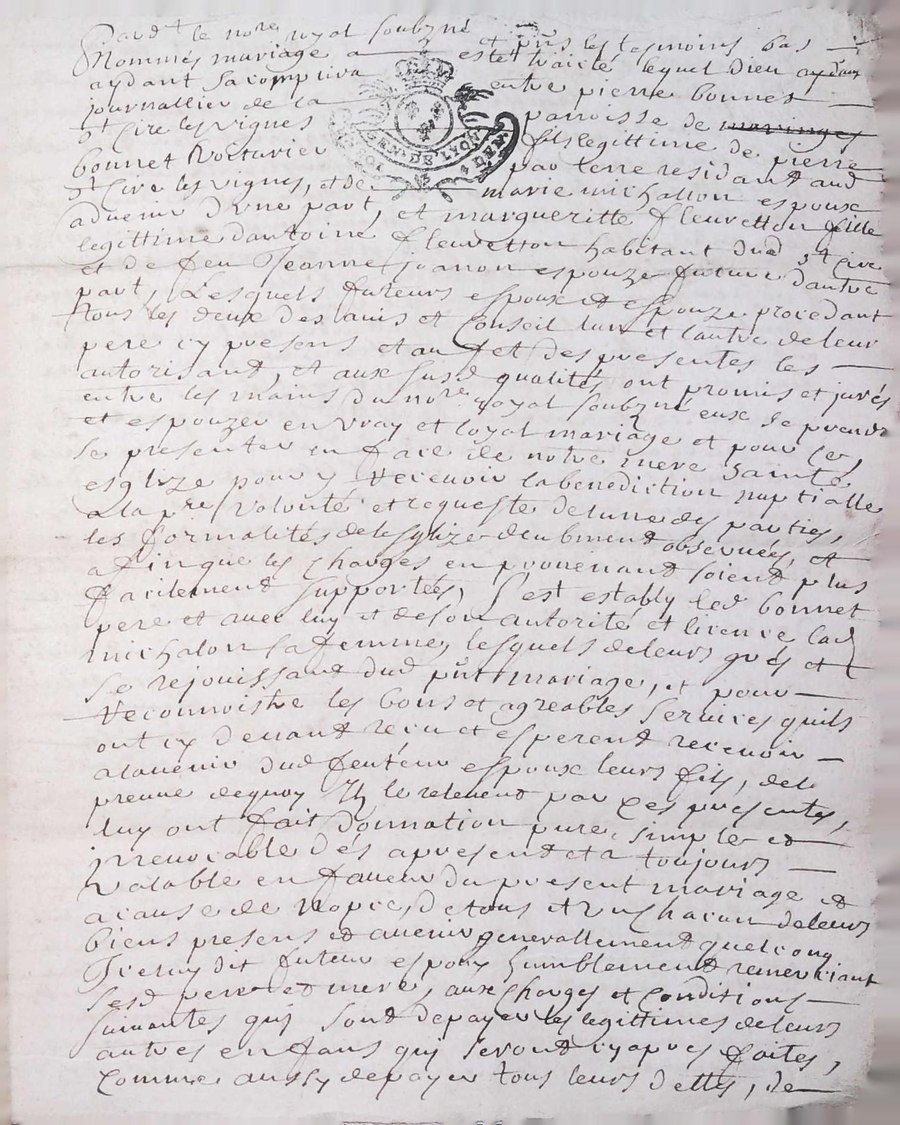 Pard.t le no.re royal soub.né et pñs les tesmoins bas
Nommés mariage a esté traicté lequel dieu aydant
aydant sacomplira entre pierre bonnet
journallier de la parroisse de maringes
S.t Cire les vignes fils legittime de pierre
bonnet Voiturier par terre residant aud
S.t Cire les vignes, et de marie michallon espoux
aduenir d'vne part, et margueritte fleuretton fille
legittime dantoine fleuretton habitant dud S.t Cire
et de feu Jeanne joanon espouze future dautre
part, Lesquels futeurs espoux et espouze procedant
tous les deux des auis et Conseil lun et lautre de leur
pere cy presens et aud et des presentes les
autorisant, et aux susd qualités ont promis et jurés
entre les mains du no.re royal soub.né eux se prendre
et espouzer en vray et loyal mariage et pour ce,
se presenter en face de notre mere Sainte
esglize pour y receuoir la benediction nuptialle
a la p.re volonté et requeste de lune des parties,
les formalités de lesglize deubment obseruées, et
afin que les charges en prouenant soient plus
facilement supportées, S'est estably led bonnet
pere et auec luy et de son autorité et licence lad
michalon sa femme, lesquels de leurs grés et
se rejouissant dud pñt mariage, et pour
reconnoistre les bons et agreables seruices quils
ont cy deuant receu et esperent receuoir
alauenir dud feuteur espoux leurs fils, de la
preuue dequoy Ils le releuent par ces presentes,
luy ont fait donnation pure, simple et
jrreuocable dés apresent et a toujours
valable en faueur du present mariage et
a cause de nopce, de tous et vn chacun de leurs
biens presens et auenir generallement quelconq
Iceluy dit futeur espoux humblement remerciant
sesd pere et mere, aux charges et conditions
suiuantes quj sont de payer les legittimes de leurs
autres enfans quj seront cy apres faites,
comme aussy de payer tous leurs dettes, de